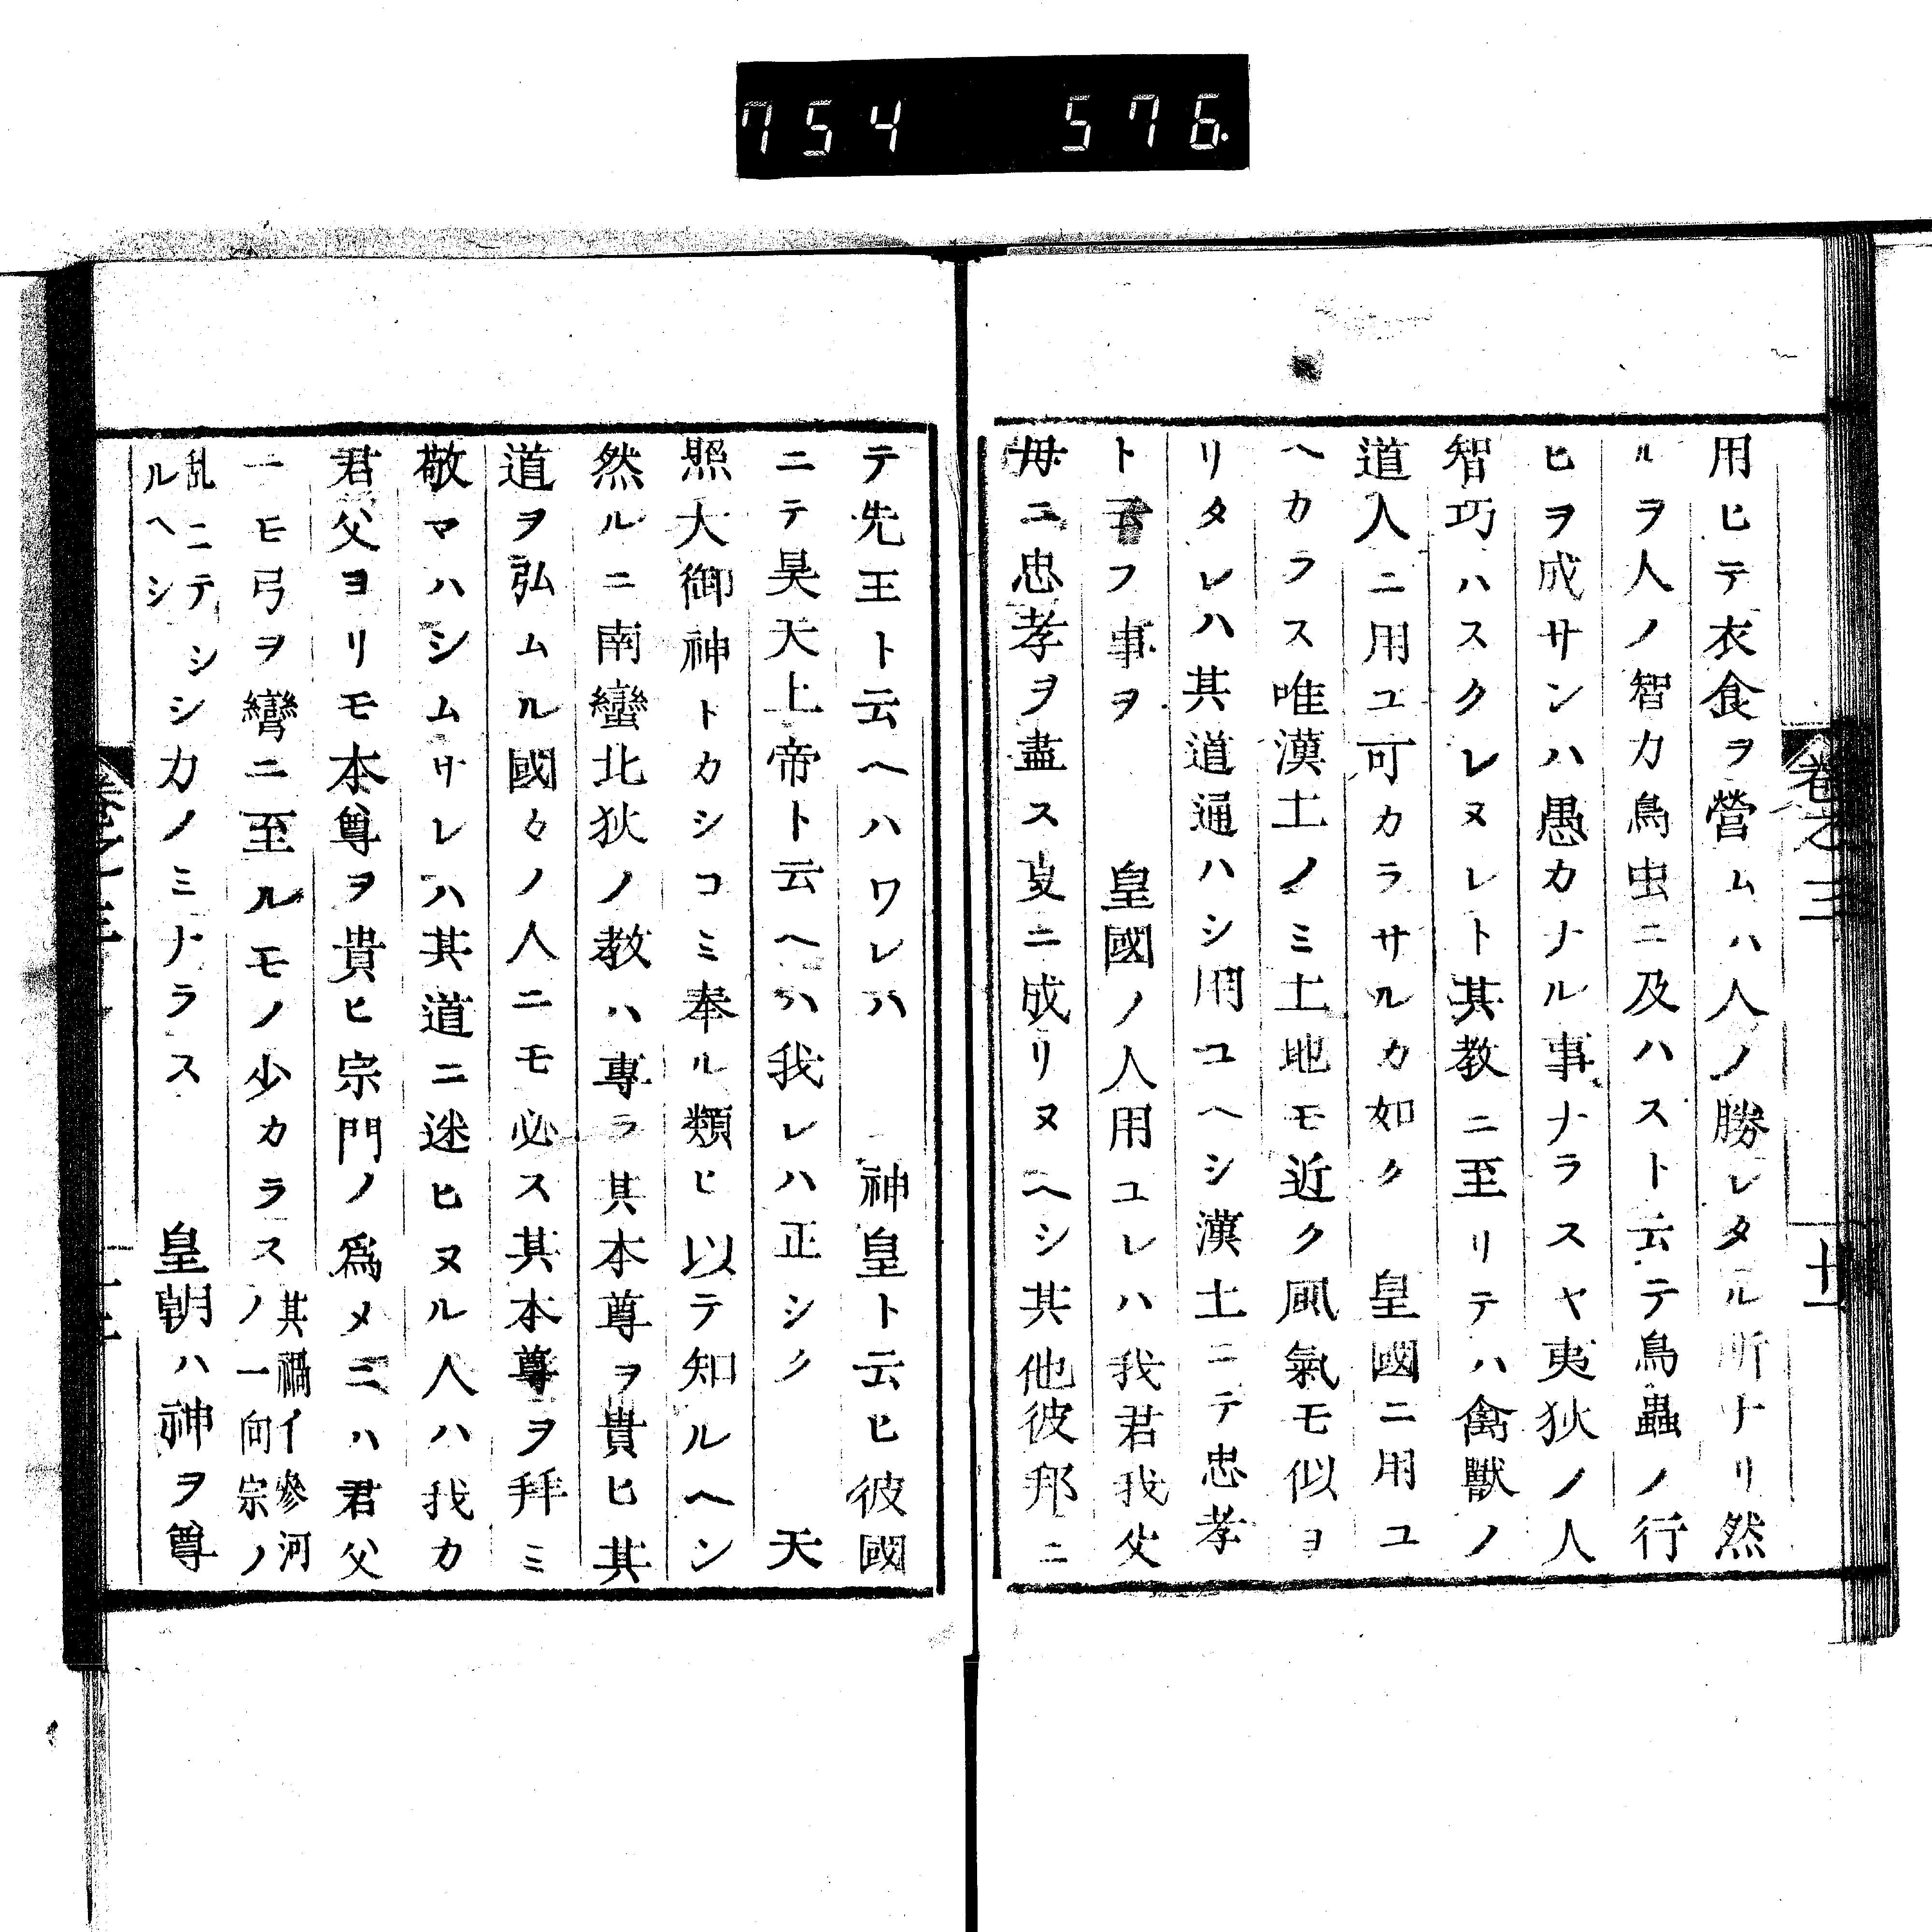 754 576
卷之三
十一
用ヒテ衣食ヲ營ムハ人ノ勝レタル所ナリ然
ルヲ人ノ智カ鳥虫ニ及ハスト云テ鳥蟲ノ行
ヒヲ成サンハ愚カナル事ナラスヤ夷狄ノ人
智巧ハスクレヌレト其教ニ至リテハ禽獸ノ
道人ニ用ユ可カラサルカ如ク 皇國ニ用ユ
ヘカラス唯漢土ノミ土地モ近ク風氣モ似ヨ
リタレハ其道通ハシ用ユヘシ漢土ニテ忠孝
ト云フ事ヲ 皇國ノ人用ユレハ我君我父
母ニ忠孝ヲ盡ス㕝ニ成リヌヘシ其他彼邦ニ
テ先王ト云ヘハワレハ 神皇ト云ヒ彼國
ニテ昊天上帝ト云ヘハ我レハ正シク 天
照大御神トカシコミ奉ル類ヒ以テ知ルヘシ
然ルニ南蠻北狄ノ教ハ專ラ其本尊ヲ貴ヒ其
道ヲ弘ムル國々ノ人ニモ必ス其本尊ヲ拜ミ
敬マハシムサレハ其道ニ迷ヒヌル人ハ我カ
君父ヨリモ本尊ヲ貴ヒ宗門ノ爲メニハ君父
ニモ弓ヲ彎ニ至ルモノ少カラス其禍イ參河
ノ一向宗ノ
乱ニテシ
ルヘシ
シカノミナラス 皇朝ハ神ヲ尊